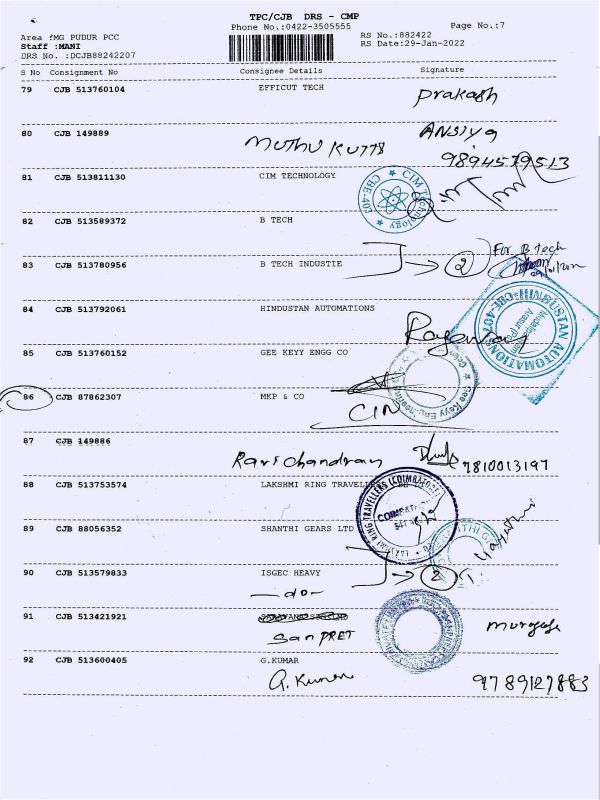 TPC/CJB DRS - CMP
Phone No.:0422-3505555
Page No.:7
Area :MG PUDUR PCC
RS No.:882422
Staff :MANI
RS Date:29-Jan-2022
DRS No. :DCJB88242207
S No Consignment No Consignee Details Signature
79 CJB 513760104 EFFICUT TECH
Prakash
80 CJB 149889 ANSIYA
MUTHU KUTTI
9894579513
81 CJB 513811130 CIM TECHNOLOGY
CIM Technology
82 CJB 513589372 B TECH
For B Tech
83 CJB 513780956 B TECH INDUSTIE 2
84 CJB 513792061 HINDUSTAN AUTOMATIONS
HINDUSTAN AUTOMATIONS
85 CJB 513760152 GEE KEYY ENGG CO
Gee Keyy Engineering
86 CJB 87862307 MKP & CO
CIN
87 CJB 149886
Ravi Chandran
7810013197
88 CJB 513753574 LAKSHMI RING TRAVELL
LAXSHMI RING TRAVELLERS (COIMBATORE)
89 CJB 88056352 SHANTHI GEARS LTD
90 CJB 513579833 ISGEC HEAVY 2
-do-
91 CJB 513421921
Sanpret
Murugesh
92 CJB 513600405 G.KUMAR
G. Kumar
9789127883